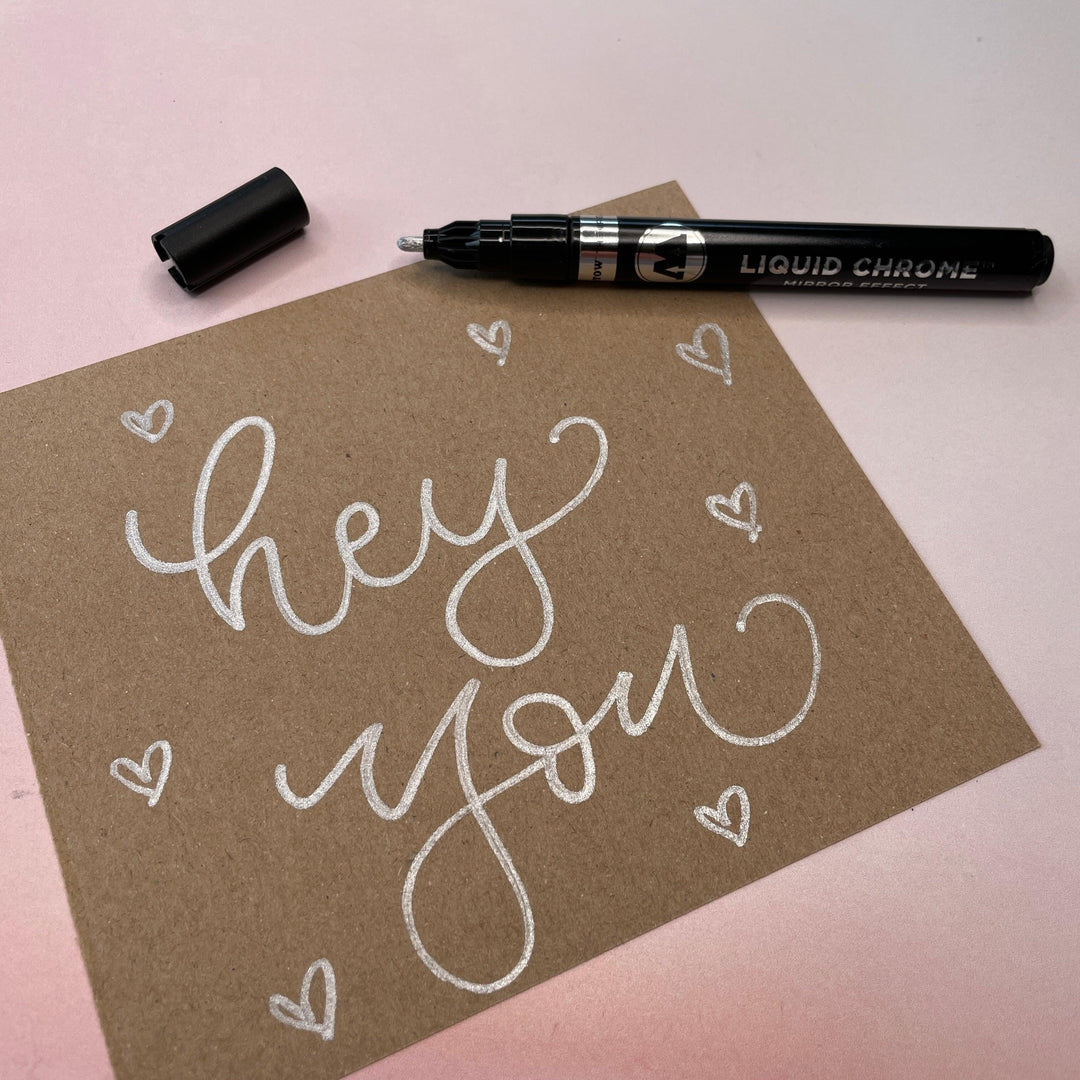 LIQUID CHROME™
MIRROR EFFECT
hey
you